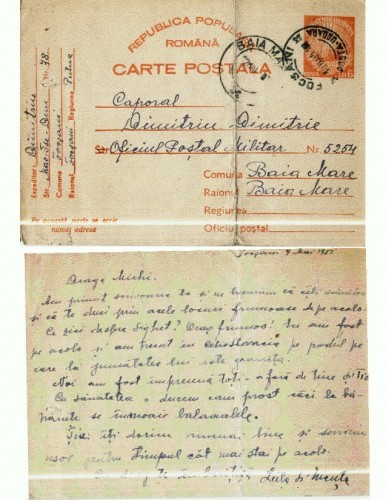 REPUBLICA POPULARĂ
ROMÂNĂ
CARTE POSTALĂ
BAIA MARE
FOCȘANI
Caporal
Dimitriu Dimitrie
Str. Oficiul Poștal Militar Nr. 5254
Comuna Baia Mare
Raionul Baia Mare
Regiunea
Oficiul poștal
Expeditor Dimitriu
Str. Nr. 78
Comuna Focșani
Raionul Focșani Regiunea Putna
Pe această parte se scrie
numai adresa
Focșani 9 Mai 1951
Drage Michi.
Am primit scrisoarea ta și ne bucurăm că ești sănătos
și că te duci prin acele locuri frumoase de pe acolo.
Ce zici despre Sighet? Oraș frumos! Eu am fost
pe acolo și am trecut în cehoslovacia pe podul pe
care la jumătatea lui este granița.
Noi am fost împreună toți - afară de tine și
Cu sănătatea o ducem cam prost căci la bă-
trânețe se înmoaie balamalele.
Ție îți dorim numai bine și serviciu
ușor pentru timpul cât mai stai pe acolo.
Lula și